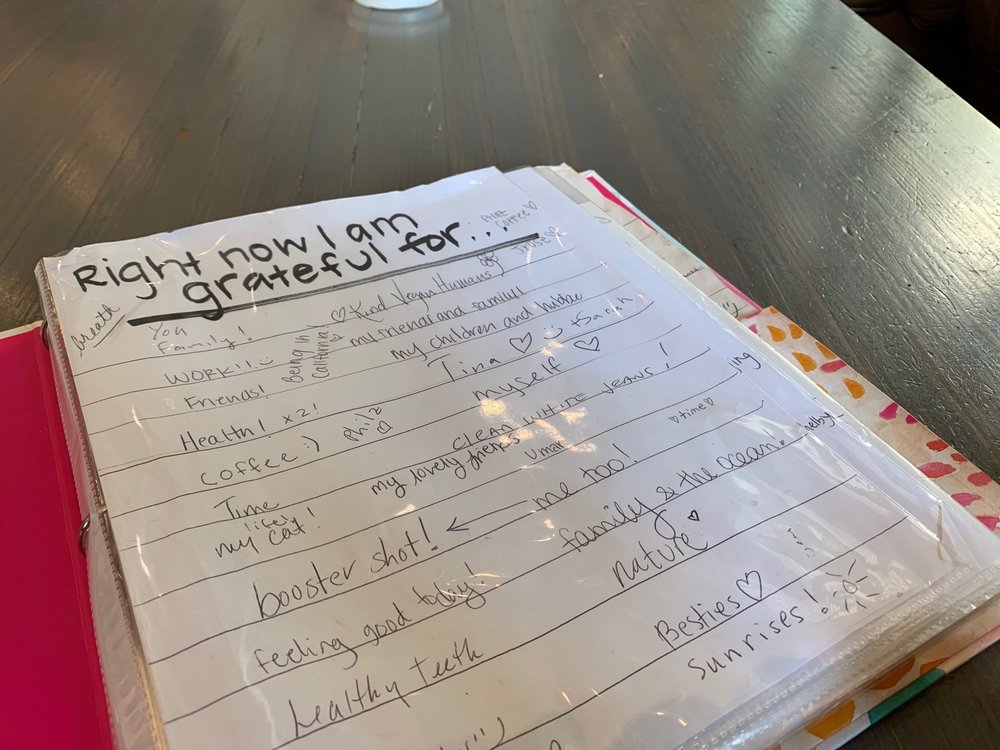 Right now I am
grateful for...
PHILZ
COFFEE ♡
breath
You
Family!
♡ Kind Vegan Humans
WORK!! :)
Being in
California!
my friends and family!
Friends!
my children and hubbae
Health! x2!
Tina ♡ :) + Sarah
coffee :)
Philz
myself ♡
Time
CLEAN WHITE JEANS!
life!
my cat!
my lovely friends
umar
♡ time ♡
jing
booster shot! ← me too!
feeling good today!
family & the ocean!
healthy teeth
nature ♡
Besties ♡
sunrises!